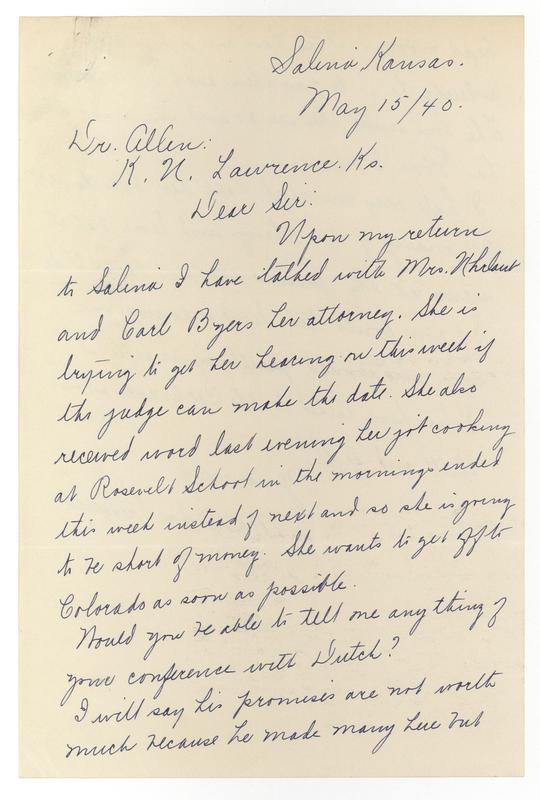 Salina Kansas.
May 15/40.
Dr. Allen:
K. U. Lawrence. Ks.
Dear Sir:
Upon my return
to Salina I have talked with Mrs.
and Carl Byers her attorney. She is
trying to get her hearing on this week if
the judge can make the date. She also
received word last evening her job cooking
at Rosevelt School in the mornings ended
this week instead of next and so she is going
to be short of money. She wants to get off to
Colorado as soon as possible.
Would you be able to tell me any thing of
your conference with Dutch?
I will say his promises are not worth
much because he made many here but